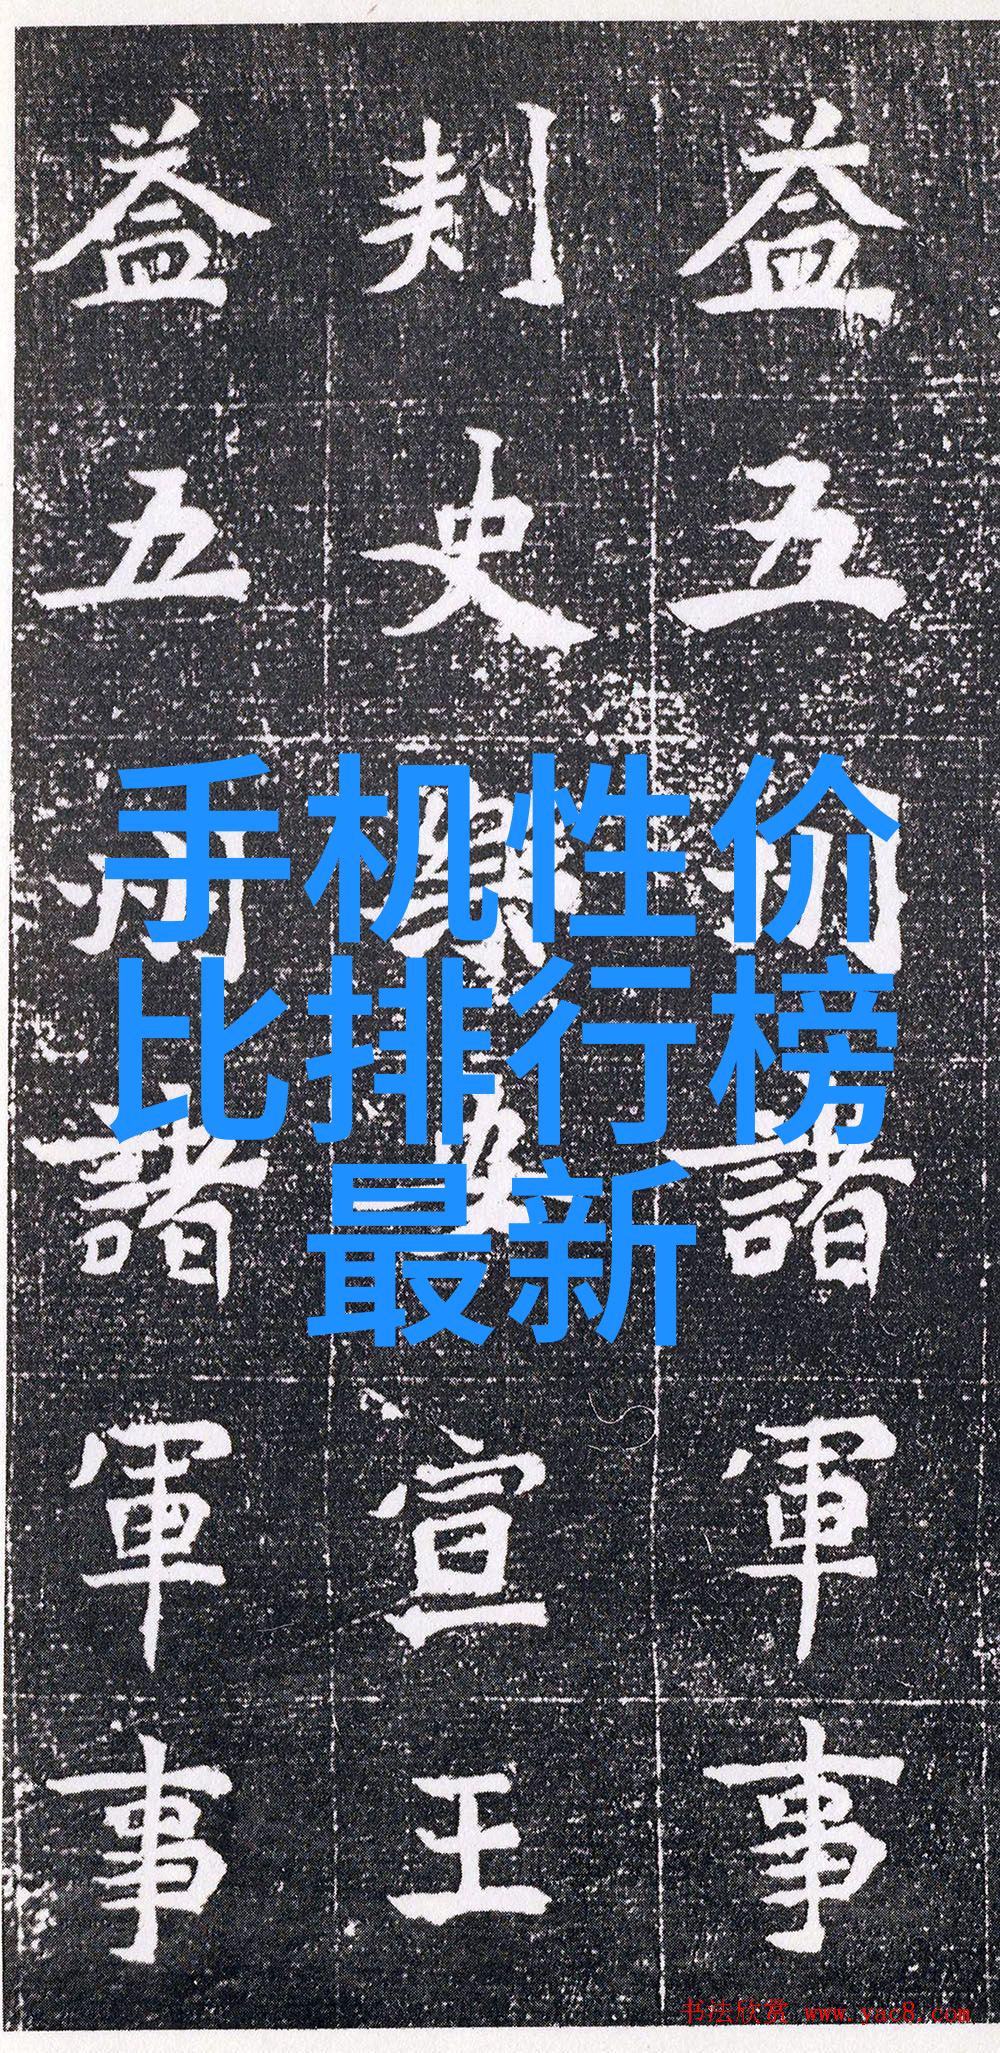 益五州諸軍事
刾史宣王
益五州諸軍事
手机性价
比排行榜
最新
书法欣赏 www.yac8.com